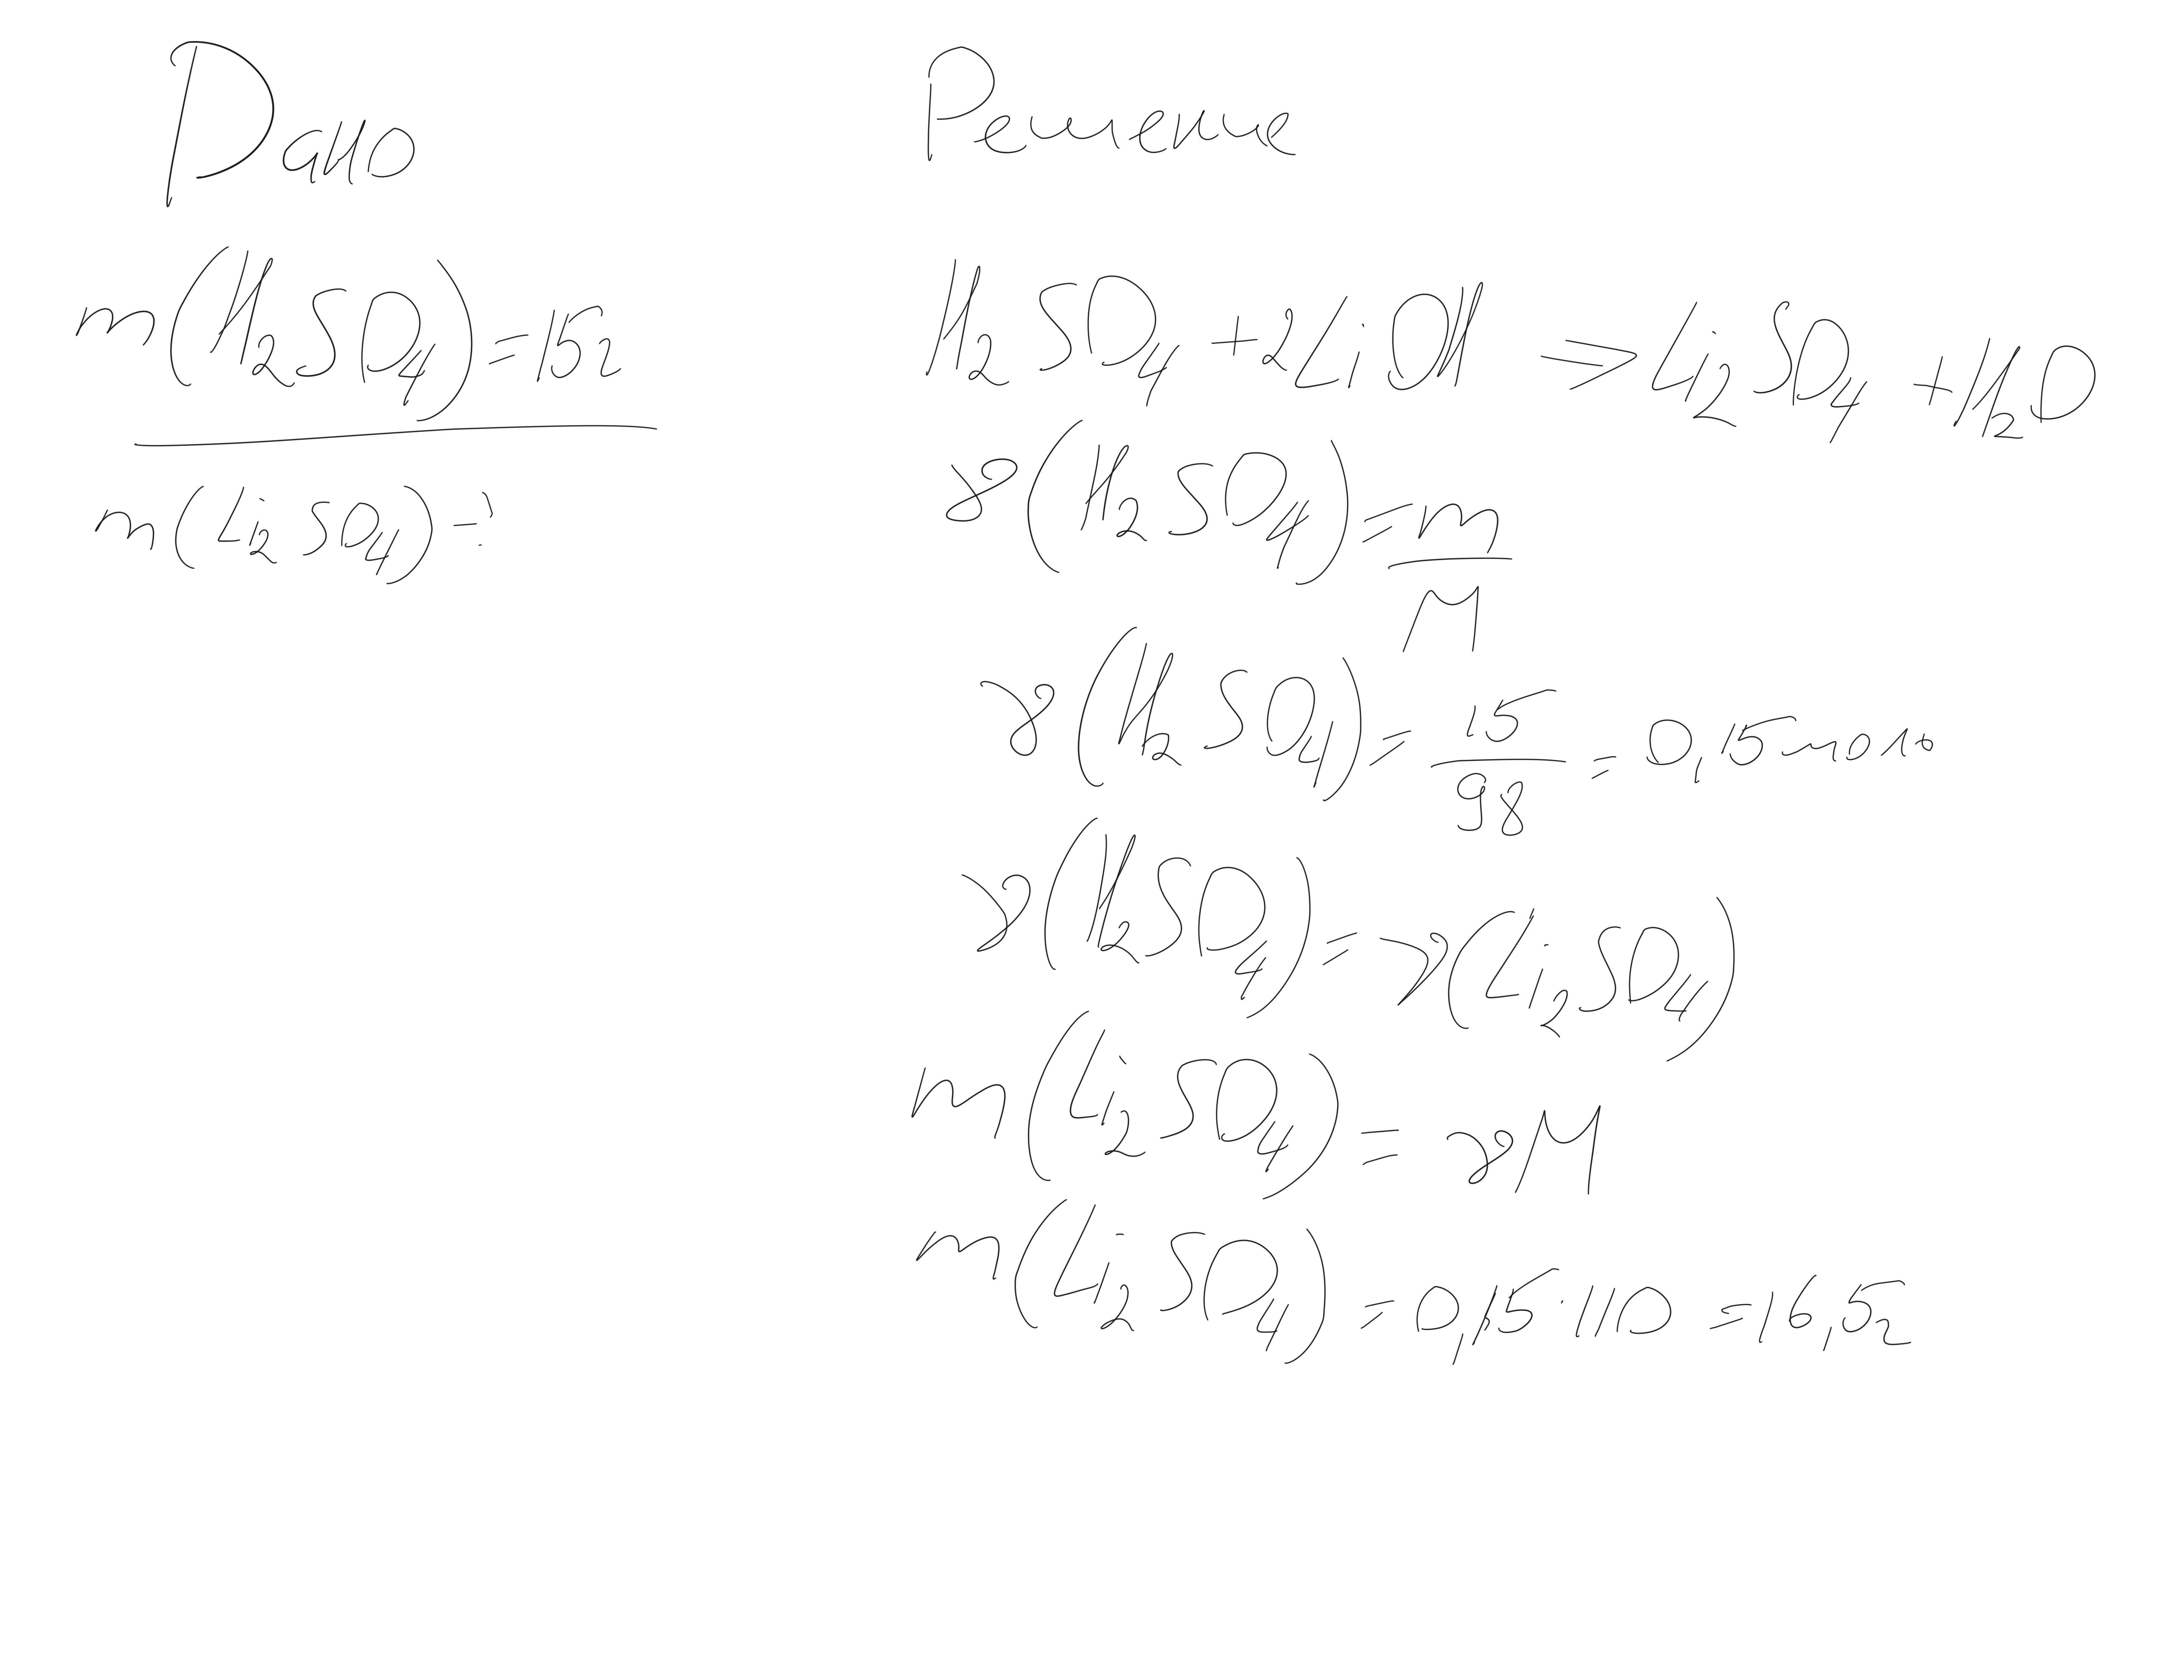 Дано
m(H₂SO₄)=15г
m(Li₂SO₄)-?
Решение
H₂SO₄+2LiOH => Li₂SO₄ + H₂O
γ(H₂SO₄)=m/M
γ(H₂SO₄)=15/98=0,15моль
γ(H₂SO₄)=γ(Li₂SO₄)
m(Li₂SO₄)=γM
m(Li₂SO₄)=0,15·110=16,5г